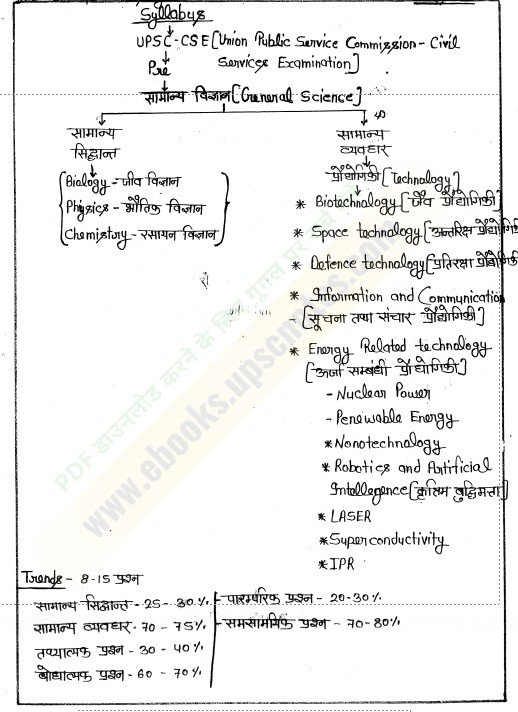 Syllabus
UPSC-CSE [Union Public Service Commission - Civil
Services Examination]
Pre
सामान्य विज्ञान [General Science]
सामान्य
सिद्धान्त
Biology - जीव विज्ञान
Physics - भौतिक विज्ञान
Chemistry - रसायन विज्ञान
सामान्य
व्यवहार
प्रौद्योगिकी [Technology]
* Biotechnology [जैव प्रौद्योगिकी]
* Space technology [अन्तरिक्ष प्रौद्योगि
* Defence technology [प्रतिरक्षा प्रौद्योगि
* Information and Communication
- [सूचना तथा संचार प्रौद्योगिकी]
* Energy Related technology
[ऊर्जा सम्बंधी प्रौद्योगिकी]
- Nuclear Power
- Penewable Energy
* Nonotechnology
* Robotics and Artificial
Intellegence [कृत्रिम बुद्धिमत्ता]
* LASER
* Superconductivity
* IPR
Trends - 8-15 प्रश्न
सामान्य सिद्धान्त - 25 - 30% - पारम्परिक प्रश्न - 20-30%
सामान्य व्यवहार - 70 - 75% - समसामयिक प्रश्न - 70-80%
तथ्यात्मक प्रश्न - 30 - 40%
बोधात्मक प्रश्न - 60 - 70%
PDF डाउनलोड करने के लिए गूगल पर सर्च करें
www.ebooks.upscnotes.com